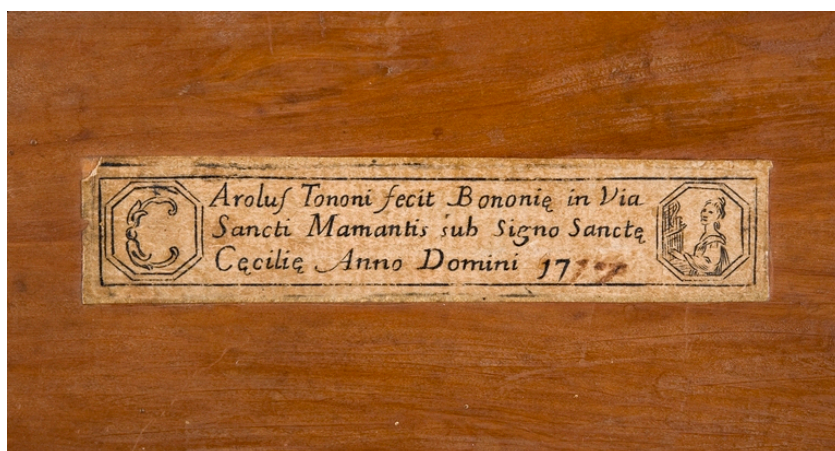 CArolus Tononi fecit Bononię in Via
Sancti Mamantis sub Signo Sanctę
Cęcilię Anno Domini 17